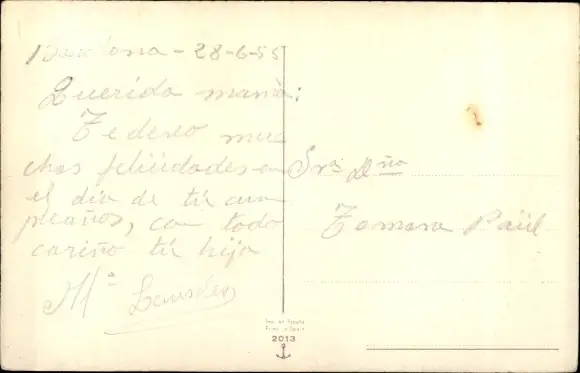 Barcelona - 28-6-55
Querida mamá:
Te deseo mu
chas felicidades en
el dia de tú cum
pleaños, con todo
cariño tú hija
Mª Lourdes
Sra Dña
Tomasa Paül
Imp. en España
Printed in Spain
2013